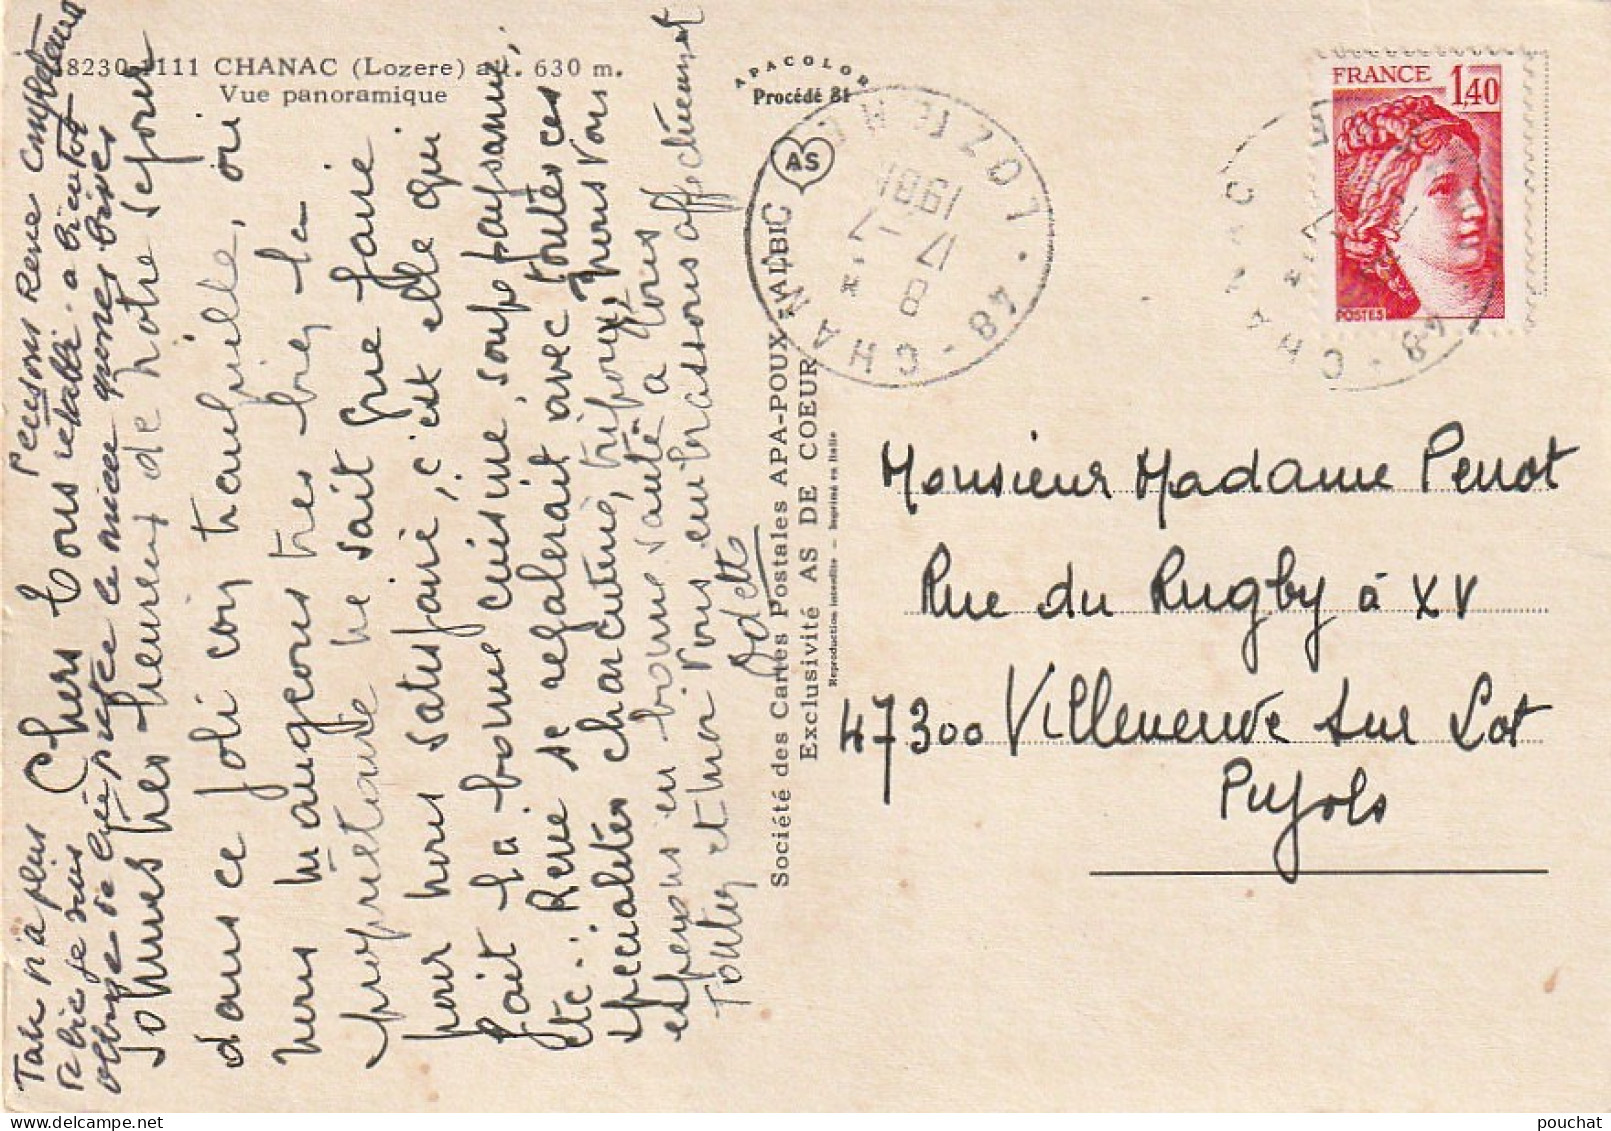 48230-1111 CHANAC (Lozere) alt. 630 m.
Vue panoramique
APACOLOR
Procédé 81
AS
Société des Cartes Postales APA-POUX - ALBI
Exclusivité AS DE COEUR
Reproduction interdite - Imprimé en Italie
FRANCE 1,40
POSTES
48 - CHANAC LOZERE
8 H
17 -7
1981
48 - CHANAC
Chers tous
sommes très heureux de notre séjour
dans ce joli coin tranquille, où
nous mangeons très bien la
propriétaire ne sait que faire
pour nous satisfaire, c'est elle qui
fait la bonne cuisine, soupe paysanne,
etc.. René se régalerait avec toutes ces
spécialités charcuterie, tripoux, nous vous
espérons en bonne santé à tous
Tonton et moi vous embrassons affectueusement
Odette
Pensons René complètement
rétabli - à bientôt
grosses bises
Monsieur Madame Perrot
Rue du Rugby à XV
47300 Villeneuve sur Lot
Pujols
pouchat